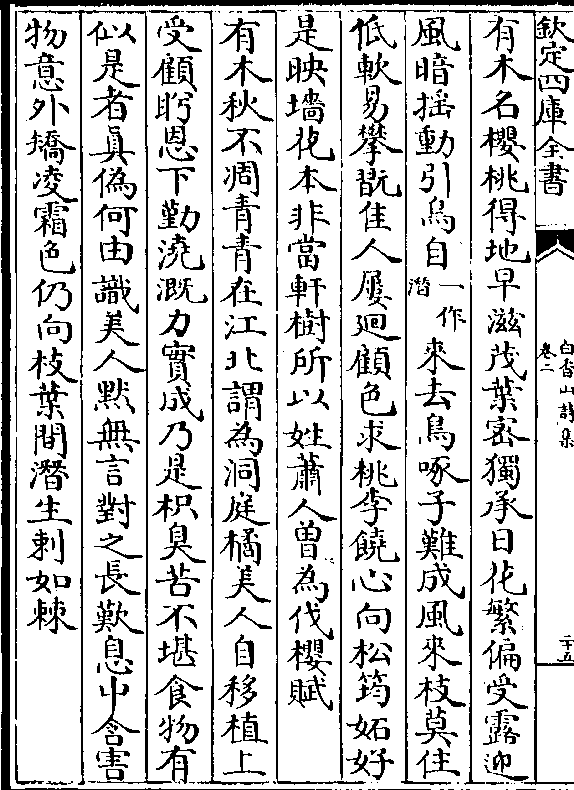 欽定四庫全書
白香山詩集
卷二
二十五
有木名櫻桃得地早滋茂葉宻獨承日花繁偏受露迎
風暗揺動引鳥自一作潛來去鳥啄子難成風來枝莫住
低軟易攀翫佳人屢廻顧色求桃李饒心向松筠妬好
是映墻花本非當軒樹所以姓蕭人曽為伐櫻賦
有木秋不凋青青在江北謂為洞庭橘美人自移植上
受顧眄恩下勤澆溉力實成乃是枳臭苦不堪食物有
似是者真偽何由識美人黙無言對之長歎息中含害
物意外矯凌霜色仍向枝葉間潛生刺如棘